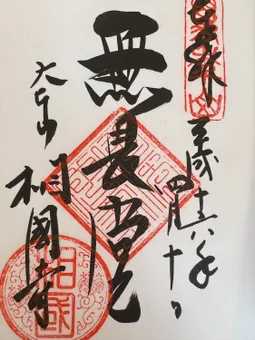 奉拝
平成廿八年
四月十日
無畏堂
大本山
相國寺